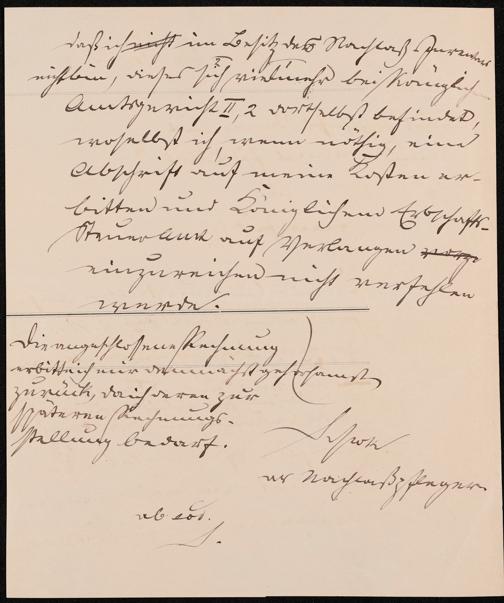 daß ich nicht im Besitz des Nachlaß Inventars
nicht bin, dieses sich vielmehr bei Königlich
Amtsgericht II, 2 dortselbst befindet,
woselbst ich, wenn nöthig, eine
Abschrift auf meine Kosten er-
bitten und Königlichem Erbschafts-
Steuer Amt auf Verlangen
einzureichen nicht verfehlen
werde.
Die angeschlossene Rechnung
erbitte ich mir demnächst gehorsamst
zurück, da ich deren zur
späteren Rechnungs-
stellung bedarf.
als Nachlaßpfleger
ab